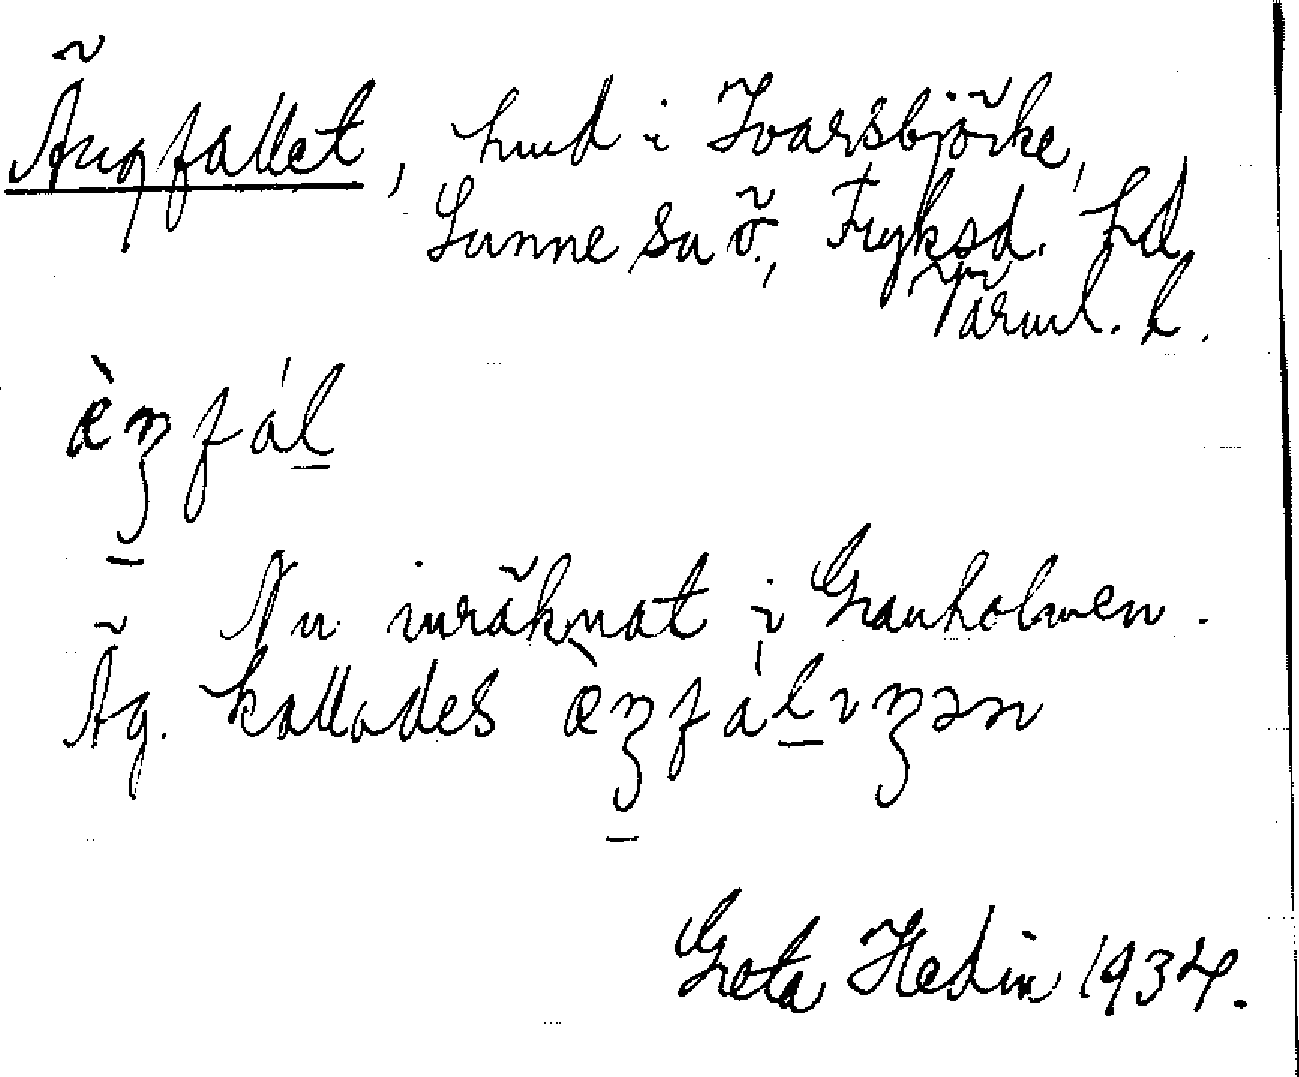 Ängfallet, hmd i Ivarsbjörke,
Sunne sn ö., Fryksd. hd,
Värml. l.
Nu inräknat i Granholmen.
Äg. kallades
Greta Hedin 1934.